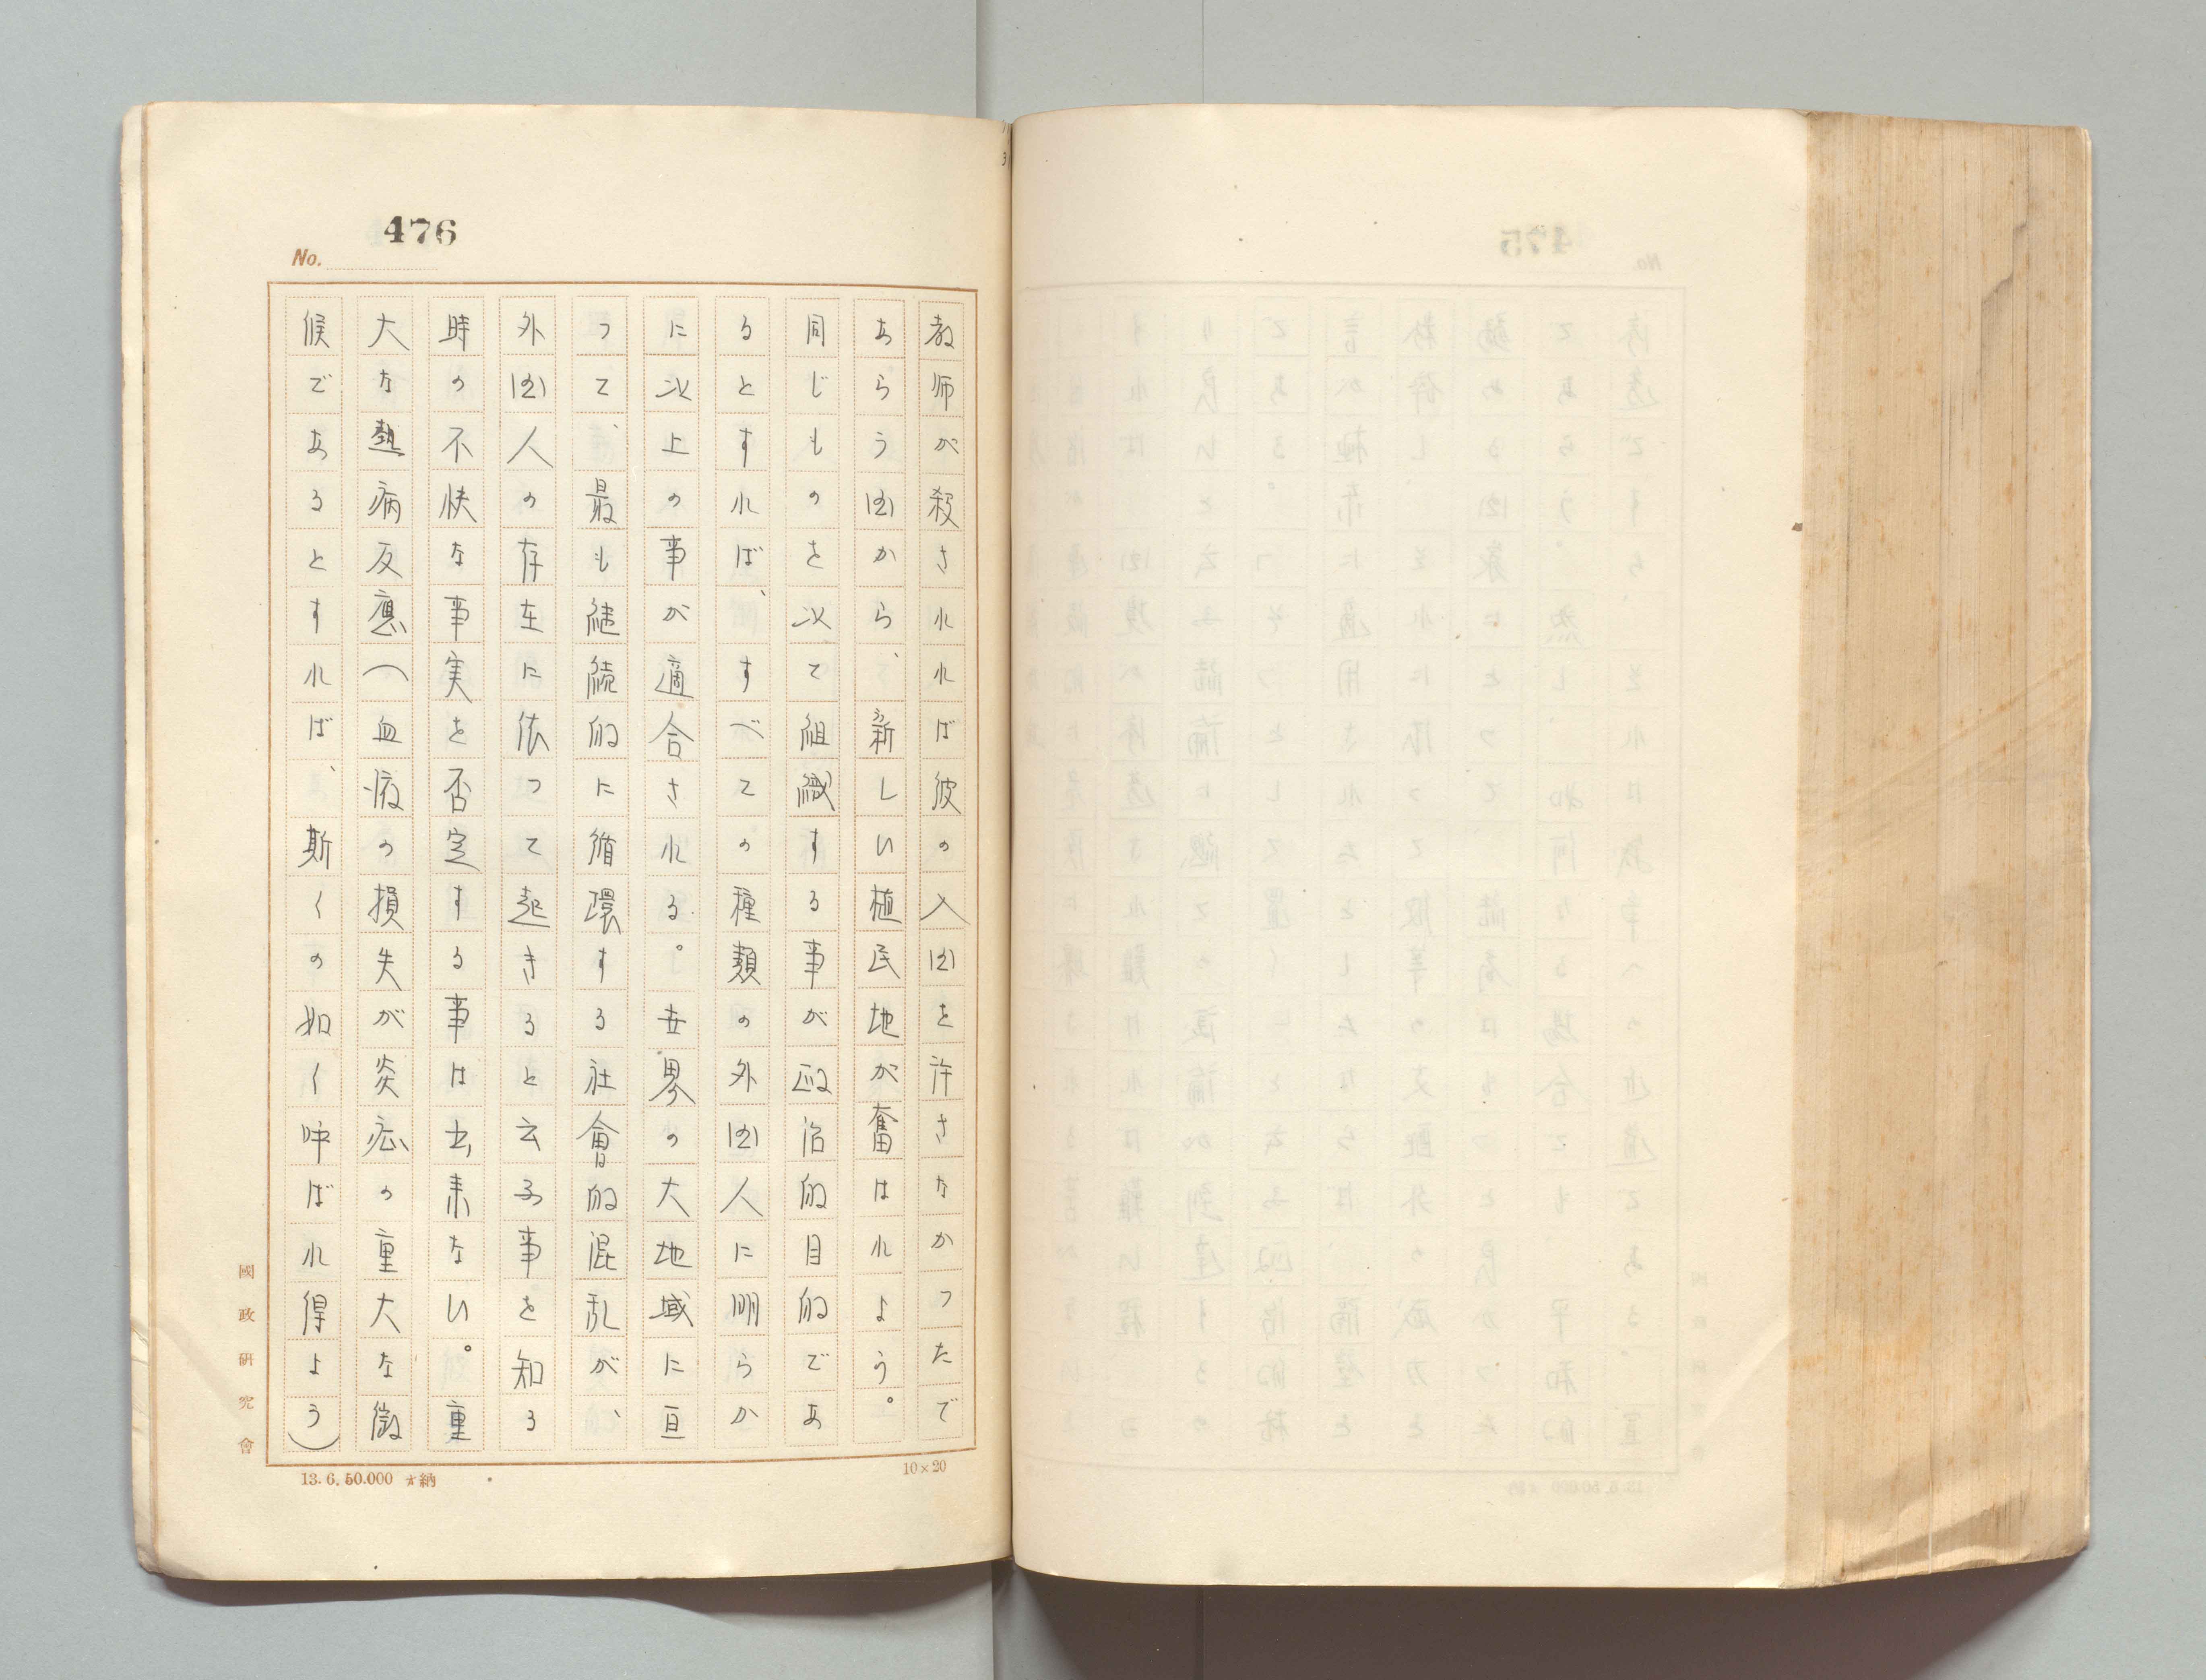 476
No.
教師が殺されれば彼の入国を許さなかつたで
あらう国から、新しい植民地が奮はれよう。
同じものを以て組織する事が政治的目的であ
るとすれば、すべての種類の外国人に明らか
に以上の事が適合される。世界の大地域に亘
つて、最も継続的に循環する社會的混乱が、
外国人の存在に依つて起きると云ふ事を知る
時の不快な事実を否定する事は出来ない。重
大な熱病反應（血液の損失が炎症の重大な徴
候であるとすれば、斯くの如く呼ばれ得よう）
國政研究會
13.6.50.000 納
10×20